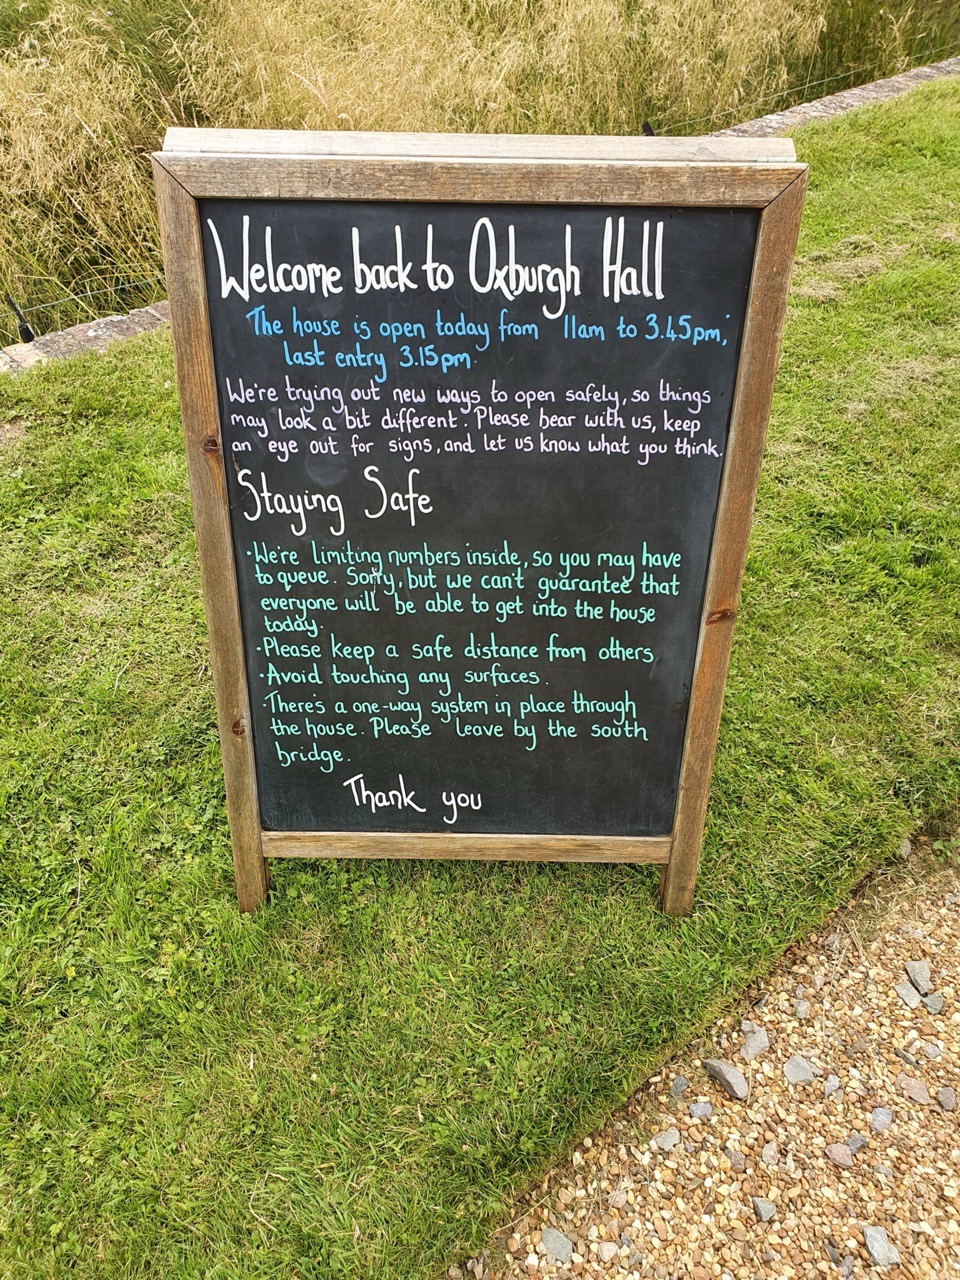 Welcome back to Oxburgh Hall
The house is open today from 11am to 3.45pm,
last entry 3.15pm.
We're trying out new ways to open safely, so things
may look a bit different. Please bear with us, keep
an eye out for signs, and let us know what you think.
Staying Safe
·We're limiting numbers inside, so you may have
to queue. Sorry, but we can't guarantee that
everyone will be able to get into the house
today.
·Please keep a safe distance from others
·Avoid touching any surfaces.
·There's a one-way system in place through
the house. Please leave by the south
bridge.
Thank you